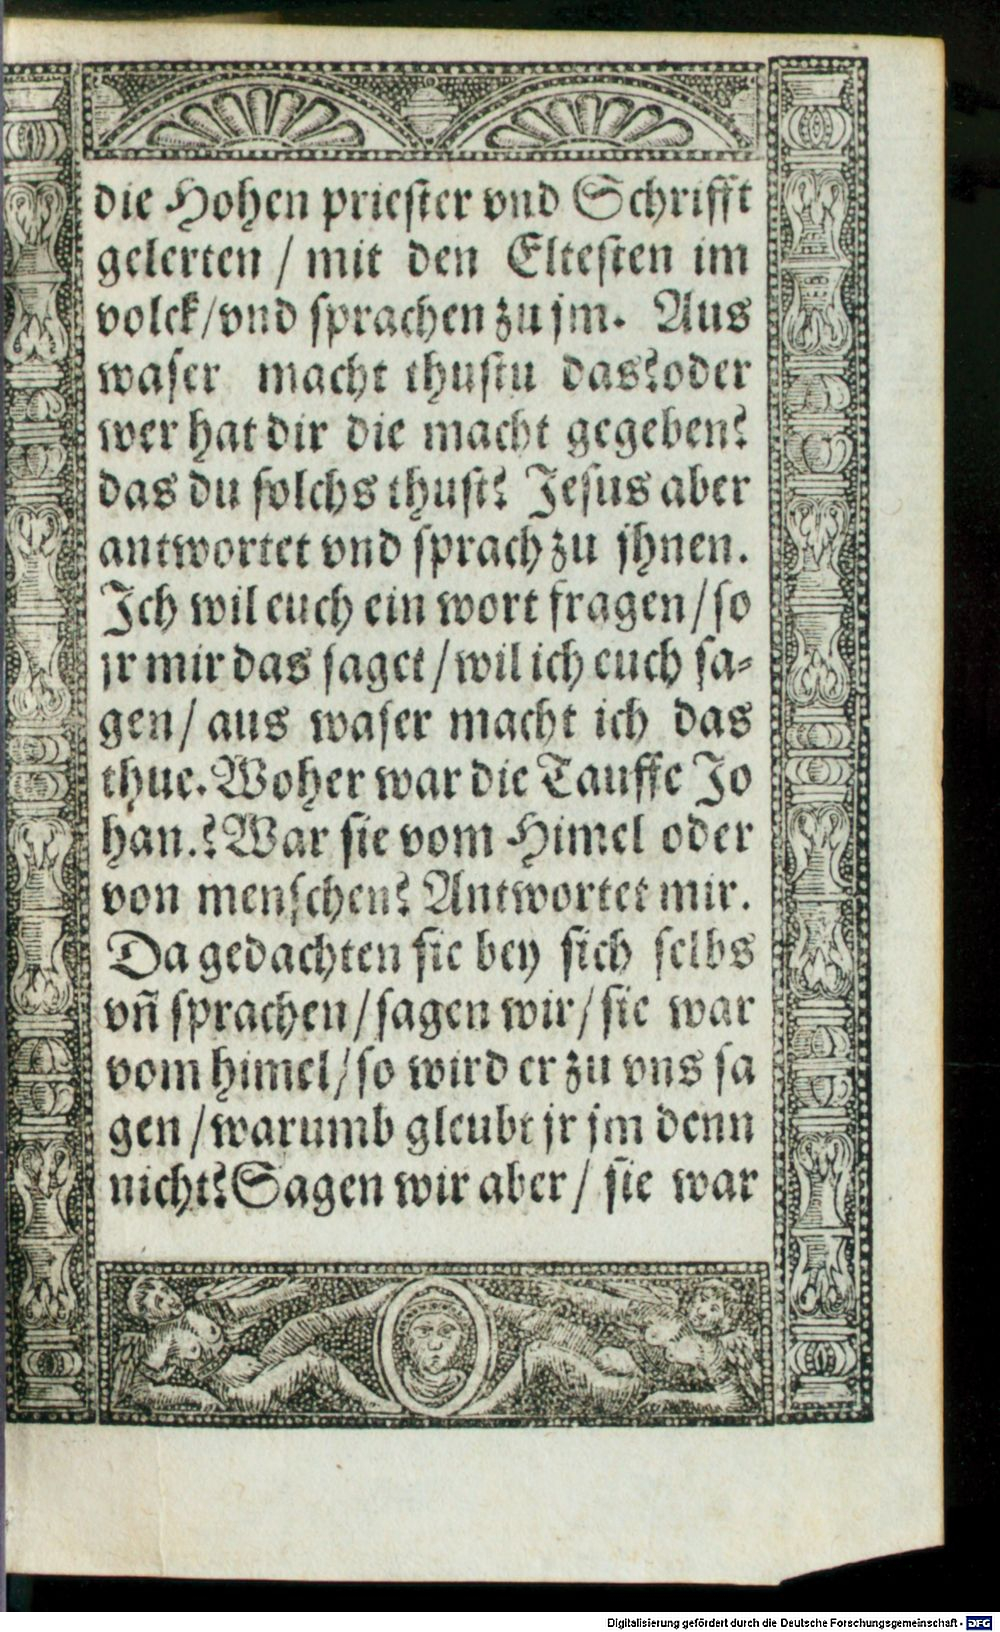 die Hohen priester vnd Schrifft
gelerten / mit den Eltesten im
volck/vnd sprachen zu jm. Aus
waser macht thustu das?oder
wer hat dir die macht gegeben?
das du solchs thust? Jesus aber
antwortet vnd sprach zu jhnen.
Ich wil euch ein wort fragen/so
jr mir das saget/wil ich euch sa⸗
gen/ aus waser macht ich das
thue. Woher war die Tauffe Jo
han.? War sie vom Himel oder
von menschen? Antwortet mir.
Da gedachten sie bey sich selbs
vñ sprachen/sagen wir/sie war
vom himel/so wird er zu vns sa
gen/warumb gleubt jr jm denn
nicht?Sagen wir aber/ sie war
Digitalisierung gefördert durch die Deutsche Forschungsgemeinschaft - DFG